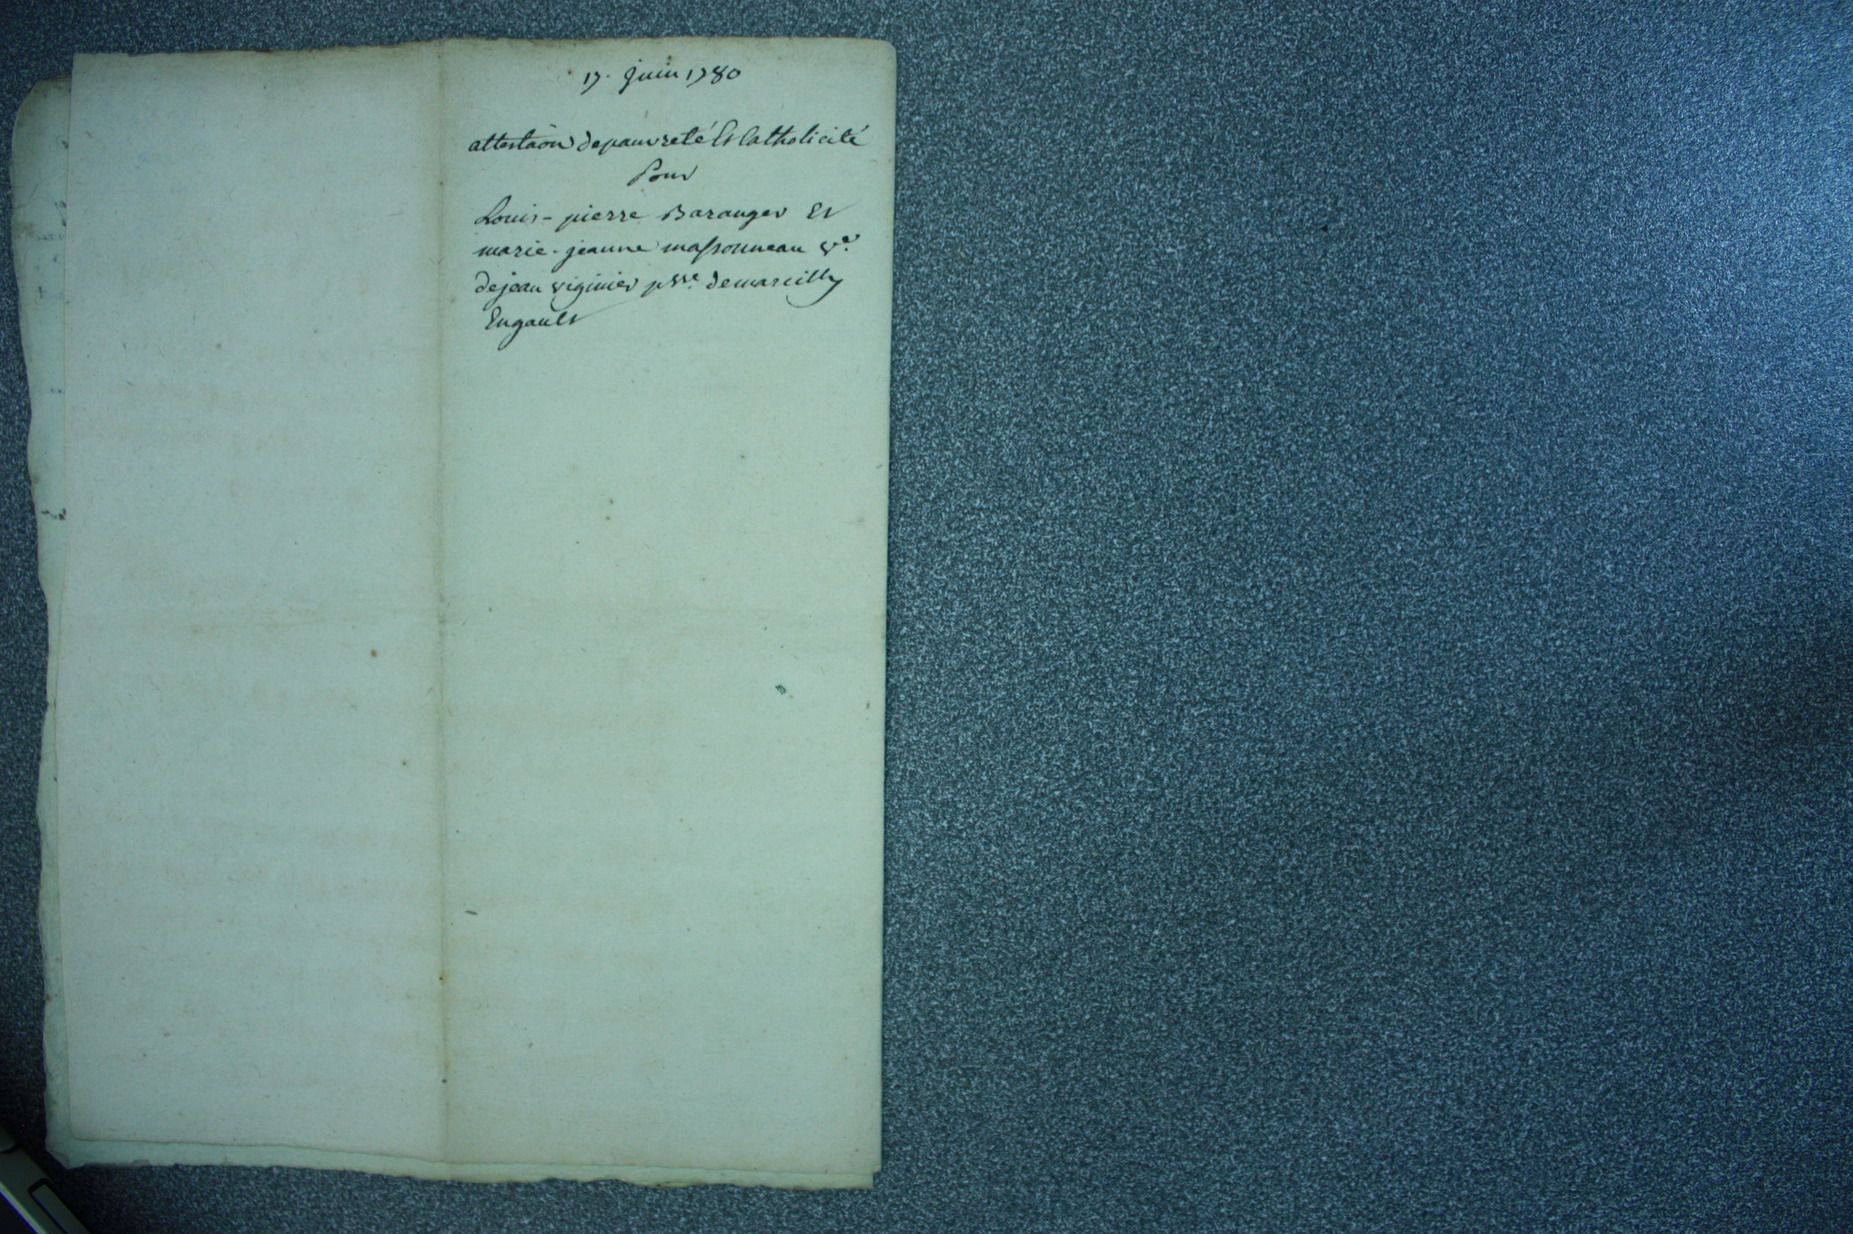 17. juin 1780
attestaon de pauvreté Et Catholicité
Pour
Louis-pierre Baranger Et
marie-jeanne massonneau ve.
de jean viginier psse. de marcilly
Engault